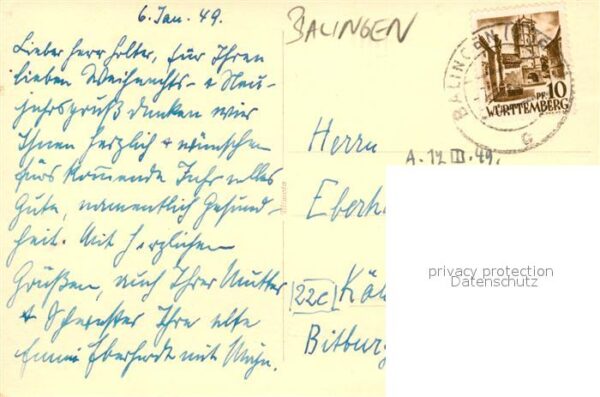 6. Jan. 49.
Lieber Herr Holter, für Ihren
lieben Weihnachts- + Neu-
jahrsgruß danken wir
Ihnen herzlich + wünschen
fürs kommende Jahr alles
Gute, namentlich Gesund-
heit. Mit herzlichen
Grüßen, auch Ihrer Mutter
+ Schwester Ihre alte
Emmi Eberhardt mit
BALINGEN
BALINGEN
PF. 10
WÜRTTEMBERG
G
A. 12 III. 49.
Herrn
Eberh
22c Köl
Bitburg
privacy protection
Datenschutz